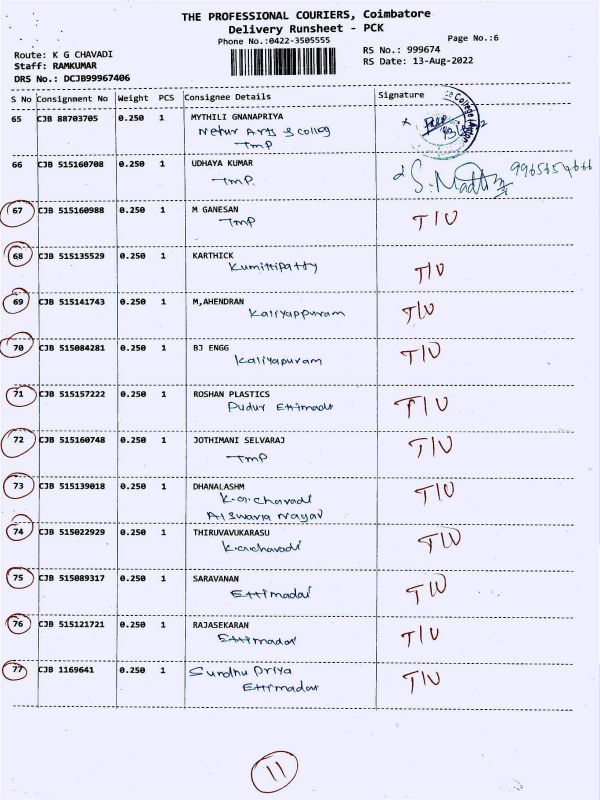 THE PROFESSIONAL COURIERS, Coimbatore
Delivery Runsheet - PCK
Phone No.:0422-3505555
Page No.:6
Route: K G CHAVADI
Staff: RAMKUMAR
DRS No.: DCJB99967406
RS No.: 999674
RS Date: 13-Aug-2022
S No Consignment No Weight PCS Consignee Details Signature
65 CJB 88703705 0.250 1 MYTHILI GNANAPRIYA
Nehru Arts & Colleg
TMP
66 CJB 515160708 0.250 1 UDHAYA KUMAR
TMP.
67 CJB 515160988 0.250 1 M GANESAN T/U
TMP
68 CJB 515135529 0.250 1 KARTHICK T/U
Kumittipatty
69 CJB 515141743 0.250 1 M,AHENDRAN T/U
Kaliyappuram
70 CJB 515084281 0.250 1 BJ ENGG T/U
Kaliyapuram
71 CJB 515157222 0.250 1 ROSHAN PLASTICS T/U
Pudur Ettimadai
72 CJB 515160748 0.250 1 JOTHIMANI SELVARAJ T/U
TMP
73 CJB 515139018 0.250 1 DHANALASHM T/U
K.G.Chavadi
Aiswarya Nagar
74 CJB 515022929 0.250 1 THIRUVAVUKARASU T/U
K.G.chavadi
75 CJB 515089317 0.250 1 SARAVANAN T/U
Ettimadai
76 CJB 515121721 0.250 1 RAJASEKARAN T/U
Ettimadai
77 CJB 1169641 0.250 1 Sundhu Priya T/U
Ettimadai
11